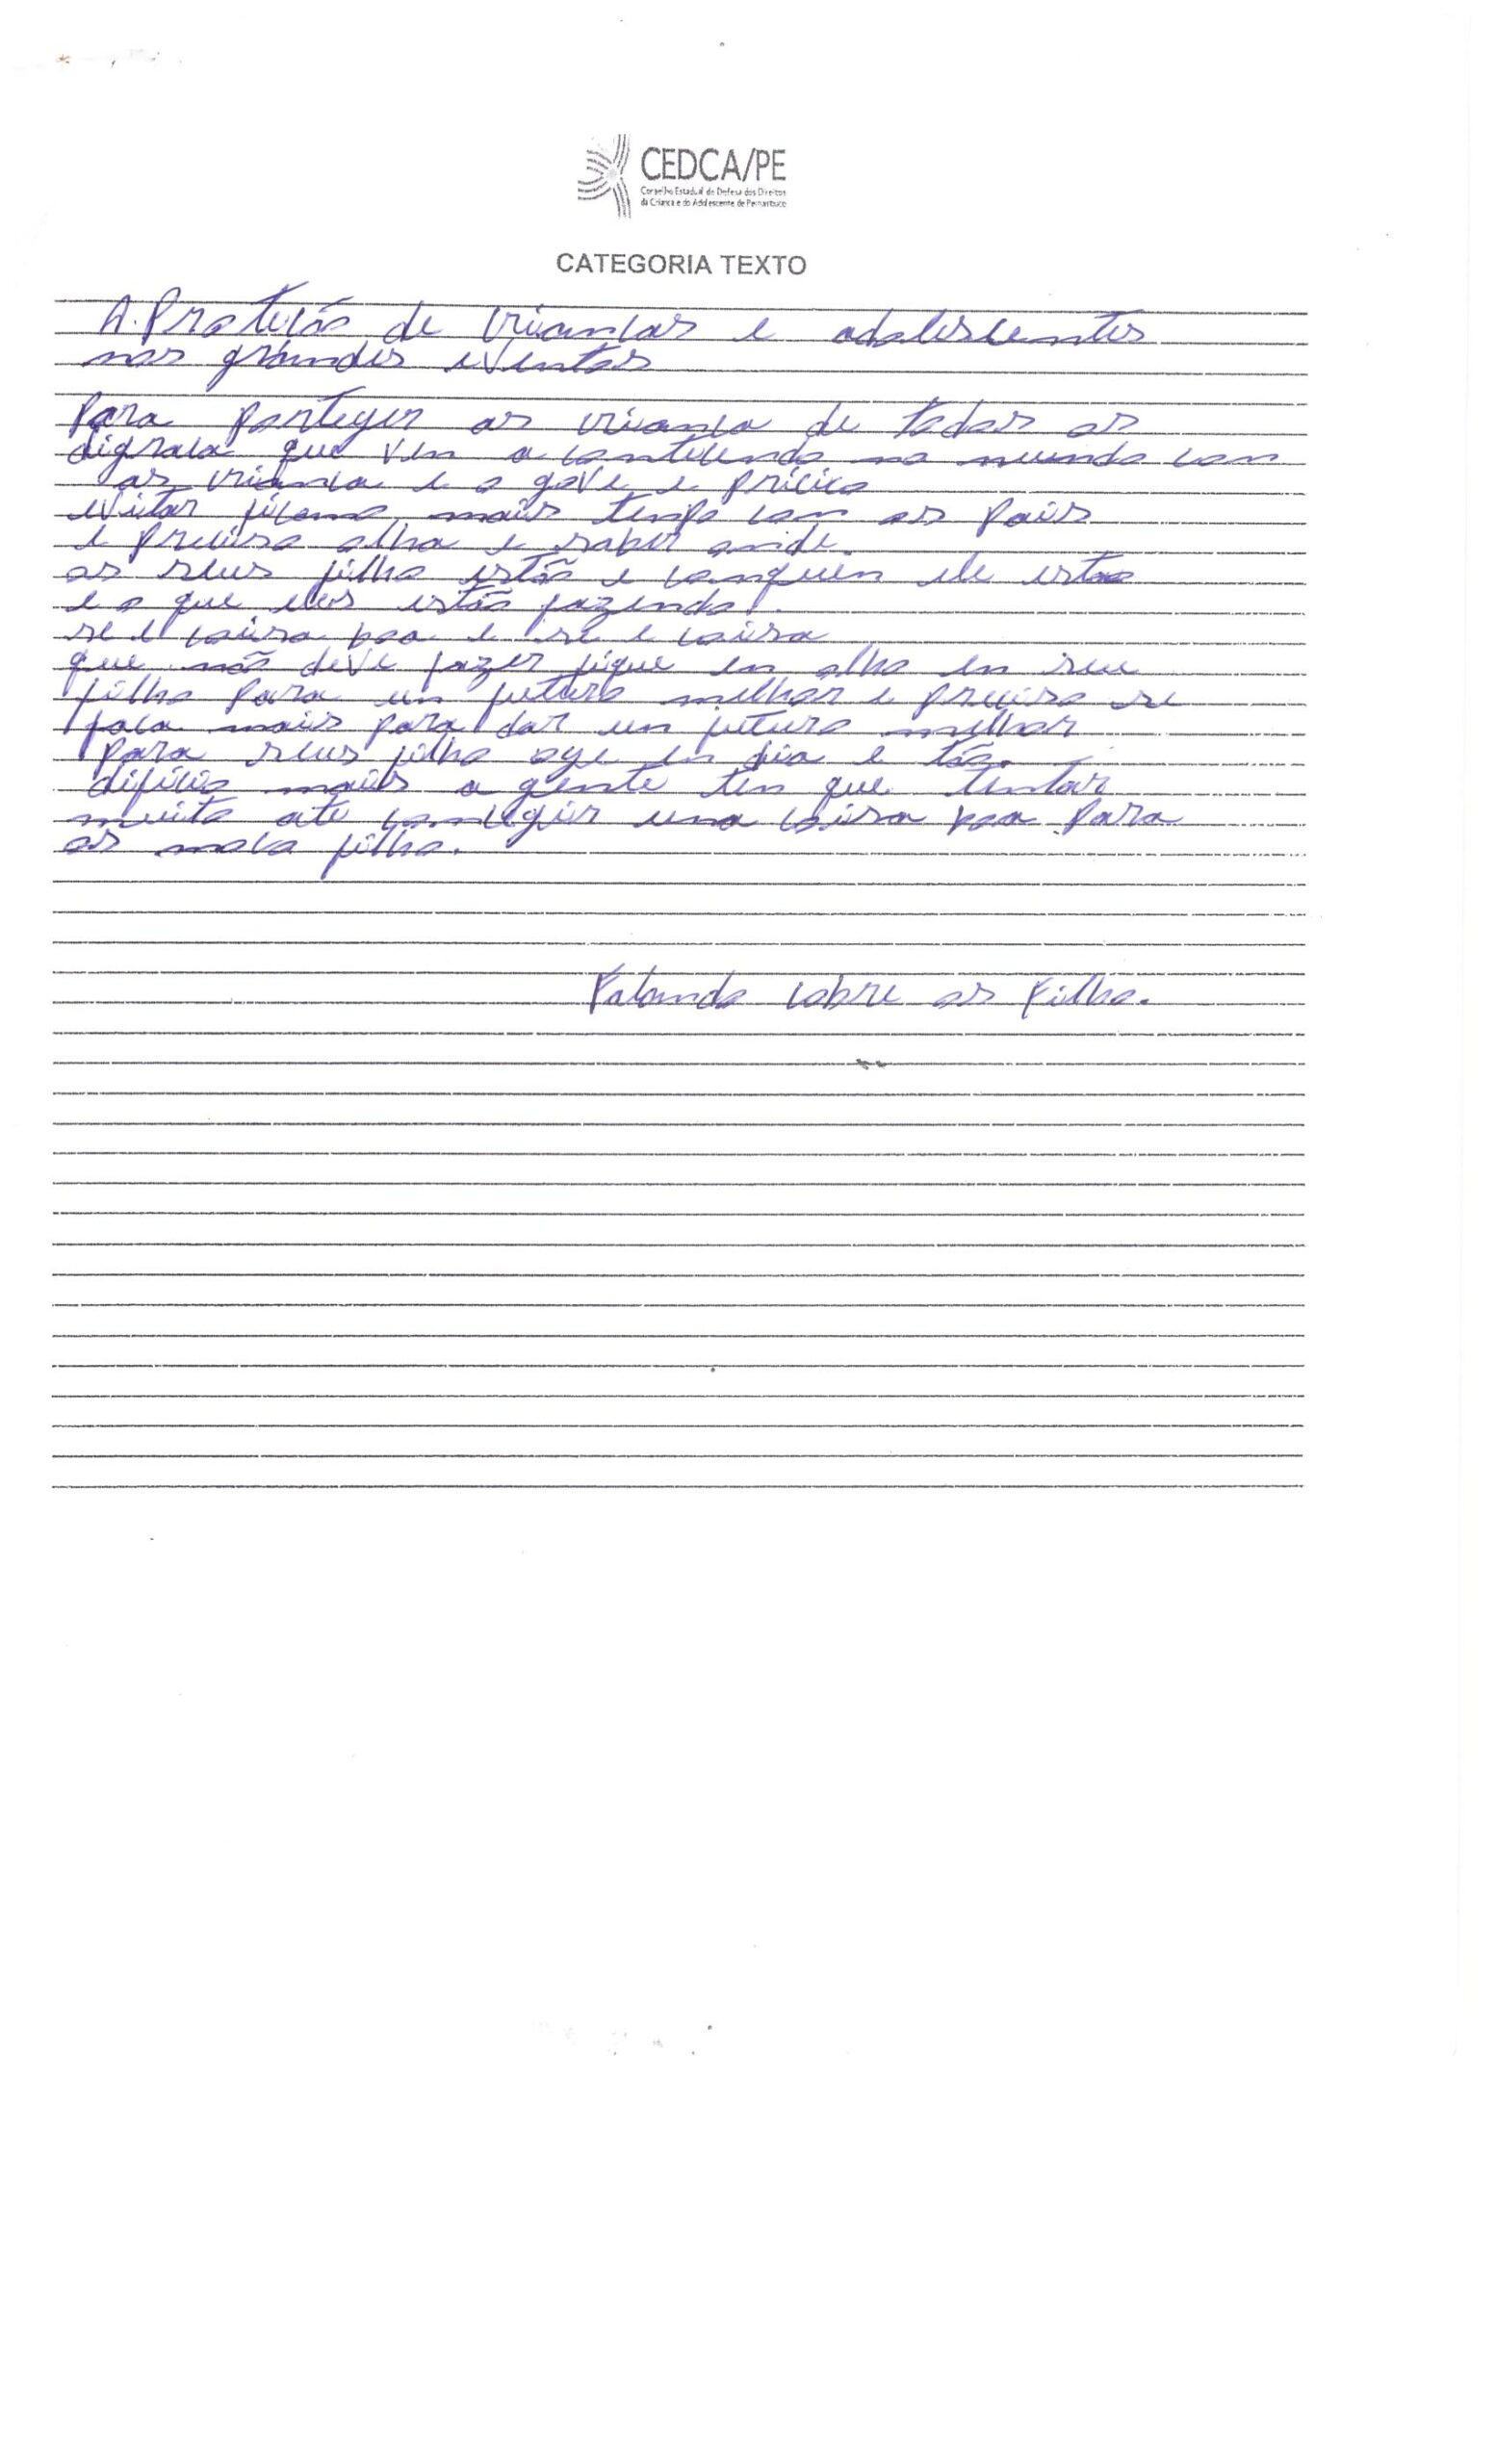 CEDCA/PE
Conselho Estadual de Defesa dos Direitos
da Criança e do Adolescente de Pernambuco
CATEGORIA TEXTO
A. Protecão de criancas e adolescentes
nos grandes eventos
Para porteger as crianca de todas as
digraca que vem a contecendo no mundo com
as crianca e o gove e pricico
evitar ficano mais tenpo com os pais
e preciso olha e saber onde.
os seus filho estão e conquen ele estão
e o que eles estão fazendo.
se e coisa boa e se e coisa
que não deve fazer fique en olho en seu
filho para un futuro melhor e preciso se
faca mais para dar un futuro melhor
para seus filho oge en dia e tão.
dificio mais a gente ten que tentar
muito ate consegir una coisa boa para
os  filho.
Falando cobre os Filho.